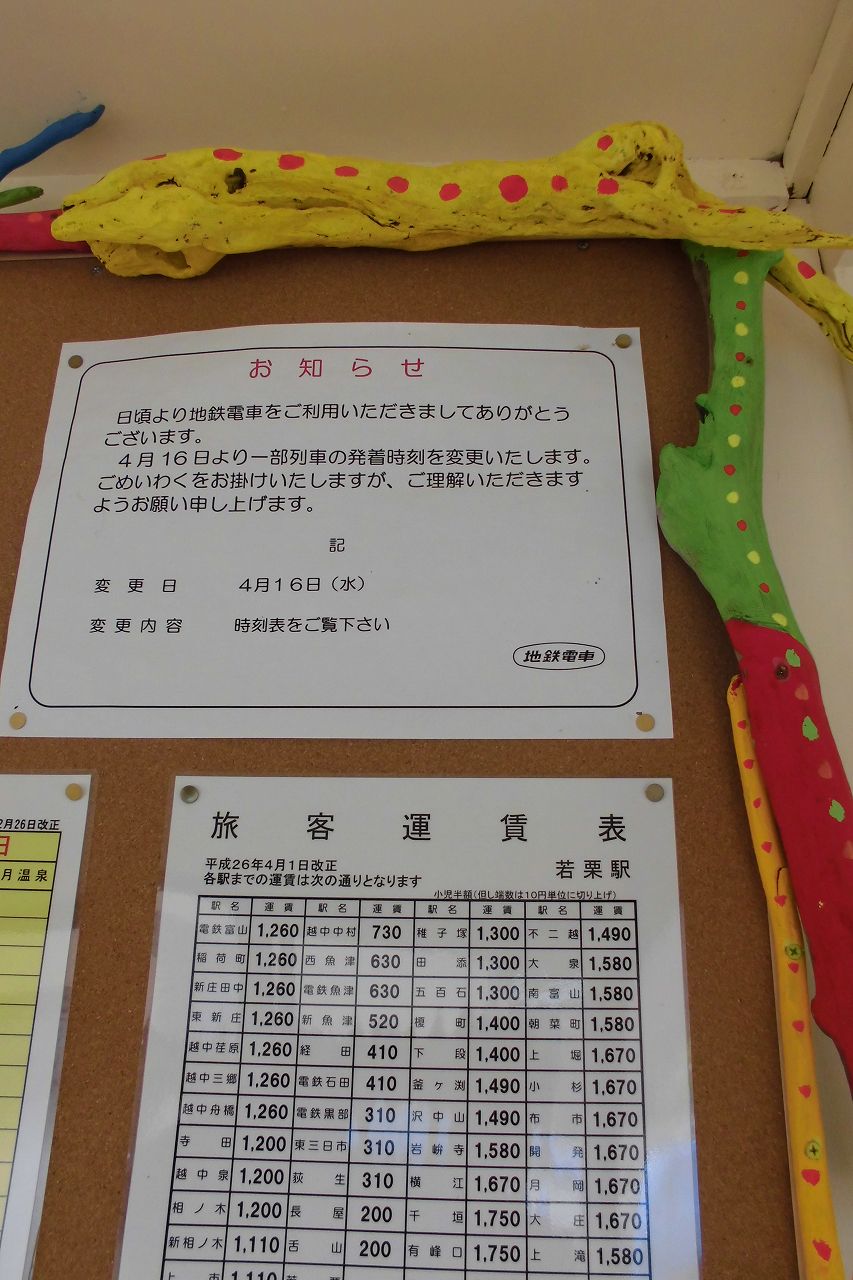 お知らせ
日頃より地鉄電車をご利用いただきましてありがとう
ございます。
4月16日より一部列車の発着時刻を変更いたします。
ごめいわくをお掛けいたしますが、ご理解いただきます
ようお願い申し上げます。
記
変更日 4月16日（水）
変更内容 時刻表をご覧下さい
地鉄電車
2月26日改正
日
月温泉
旅客運賃表
平成26年4月1日改正
若栗駅
各駅までの運賃は次の通りとなります
小児半額(但し端数は10円単位に切り上げ)
駅名 運賃 駅名 運賃 駅名 運賃 駅名 運賃
電鉄富山 1,260 越中中村 730 稚子塚 1,300 不二越 1,490
稲荷町 1,260 西魚津 630 田添 1,300 大泉 1,580
新庄田中 1,260 電鉄魚津 630 五百石 1,300 南富山 1,580
東新庄 1,260 新魚津 520 榎町 1,400 朝菜町 1,580
越中荏原 1,260 経田 410 下段 1,400 上堀 1,670
越中三郷 1,260 電鉄石田 410 釜ヶ渕 1,490 小杉 1,670
越中舟橋 1,260 電鉄黒部 310 沢中山 1,490 布市 1,670
寺田 1,200 東三日市 310 岩峅寺 1,580 開発 1,670
越中泉 1,200 荻生 310 横江 1,670 月岡 1,670
相ノ木 1,200 長屋 200 千垣 1,750 大庄 1,670
新相ノ木 1,110 舌山 200 有峰口 1,750 上滝 1,580
上市 1,110